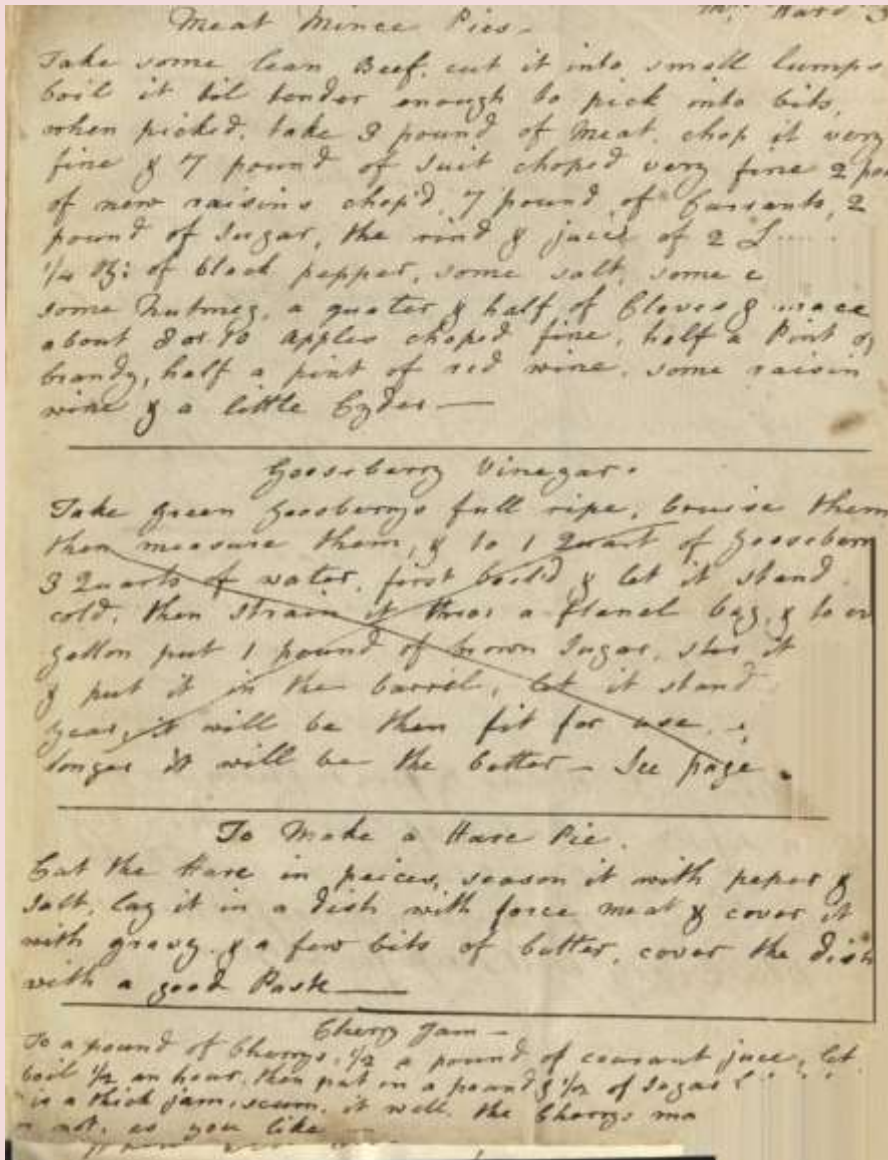 Meat Mince Pies -
Take some lean Beef. cut it into small lumps
boil it til tender enough to pick into bits,
when picked, take 3 pound of Meat, chop it very
fine & 7 pound of Suit choped very fine 2
of new raisins chop'd, 7 pound of Currants, 2
pound of Sugar, the rind & juce of 2
1/4 of black pepper, some salt, some
some Nutmeg, a quater & half of Cloves & mace
about 8 or 10 Apples choped fine, half a Pint of
brandy, half a pint of red wine, some raisin
wine & a little Cyder —
Gooseberry Vinegar.
Take green Gooseberrys full ripe, bruise them
then measure them, & to 1 Quart of
3 Quarts of water, first boil'd & let it stand
cold, then strain it thro a flanel bag, & to
gallon put 1 pound of brown Sugar, stir it
& put it in the barrel, let it stand
year, it will be then fit for use
longer it will be the better - See page
To Make a Hare Pie.
Cut the Hare in peices, season it with peper &
salt, lay it in a dish with force meat & cover it
with gravy & a few bits of butter, cover the dish
with a good Paste —
Cherry Jam -
To a pound of Cherrys, 1/2 a pound of courant juce, let
boil 1/2 an hour, then put in a pound & 1/2 of Sugar
is a thick jam, scum it well, the Cherrys
not, as you like